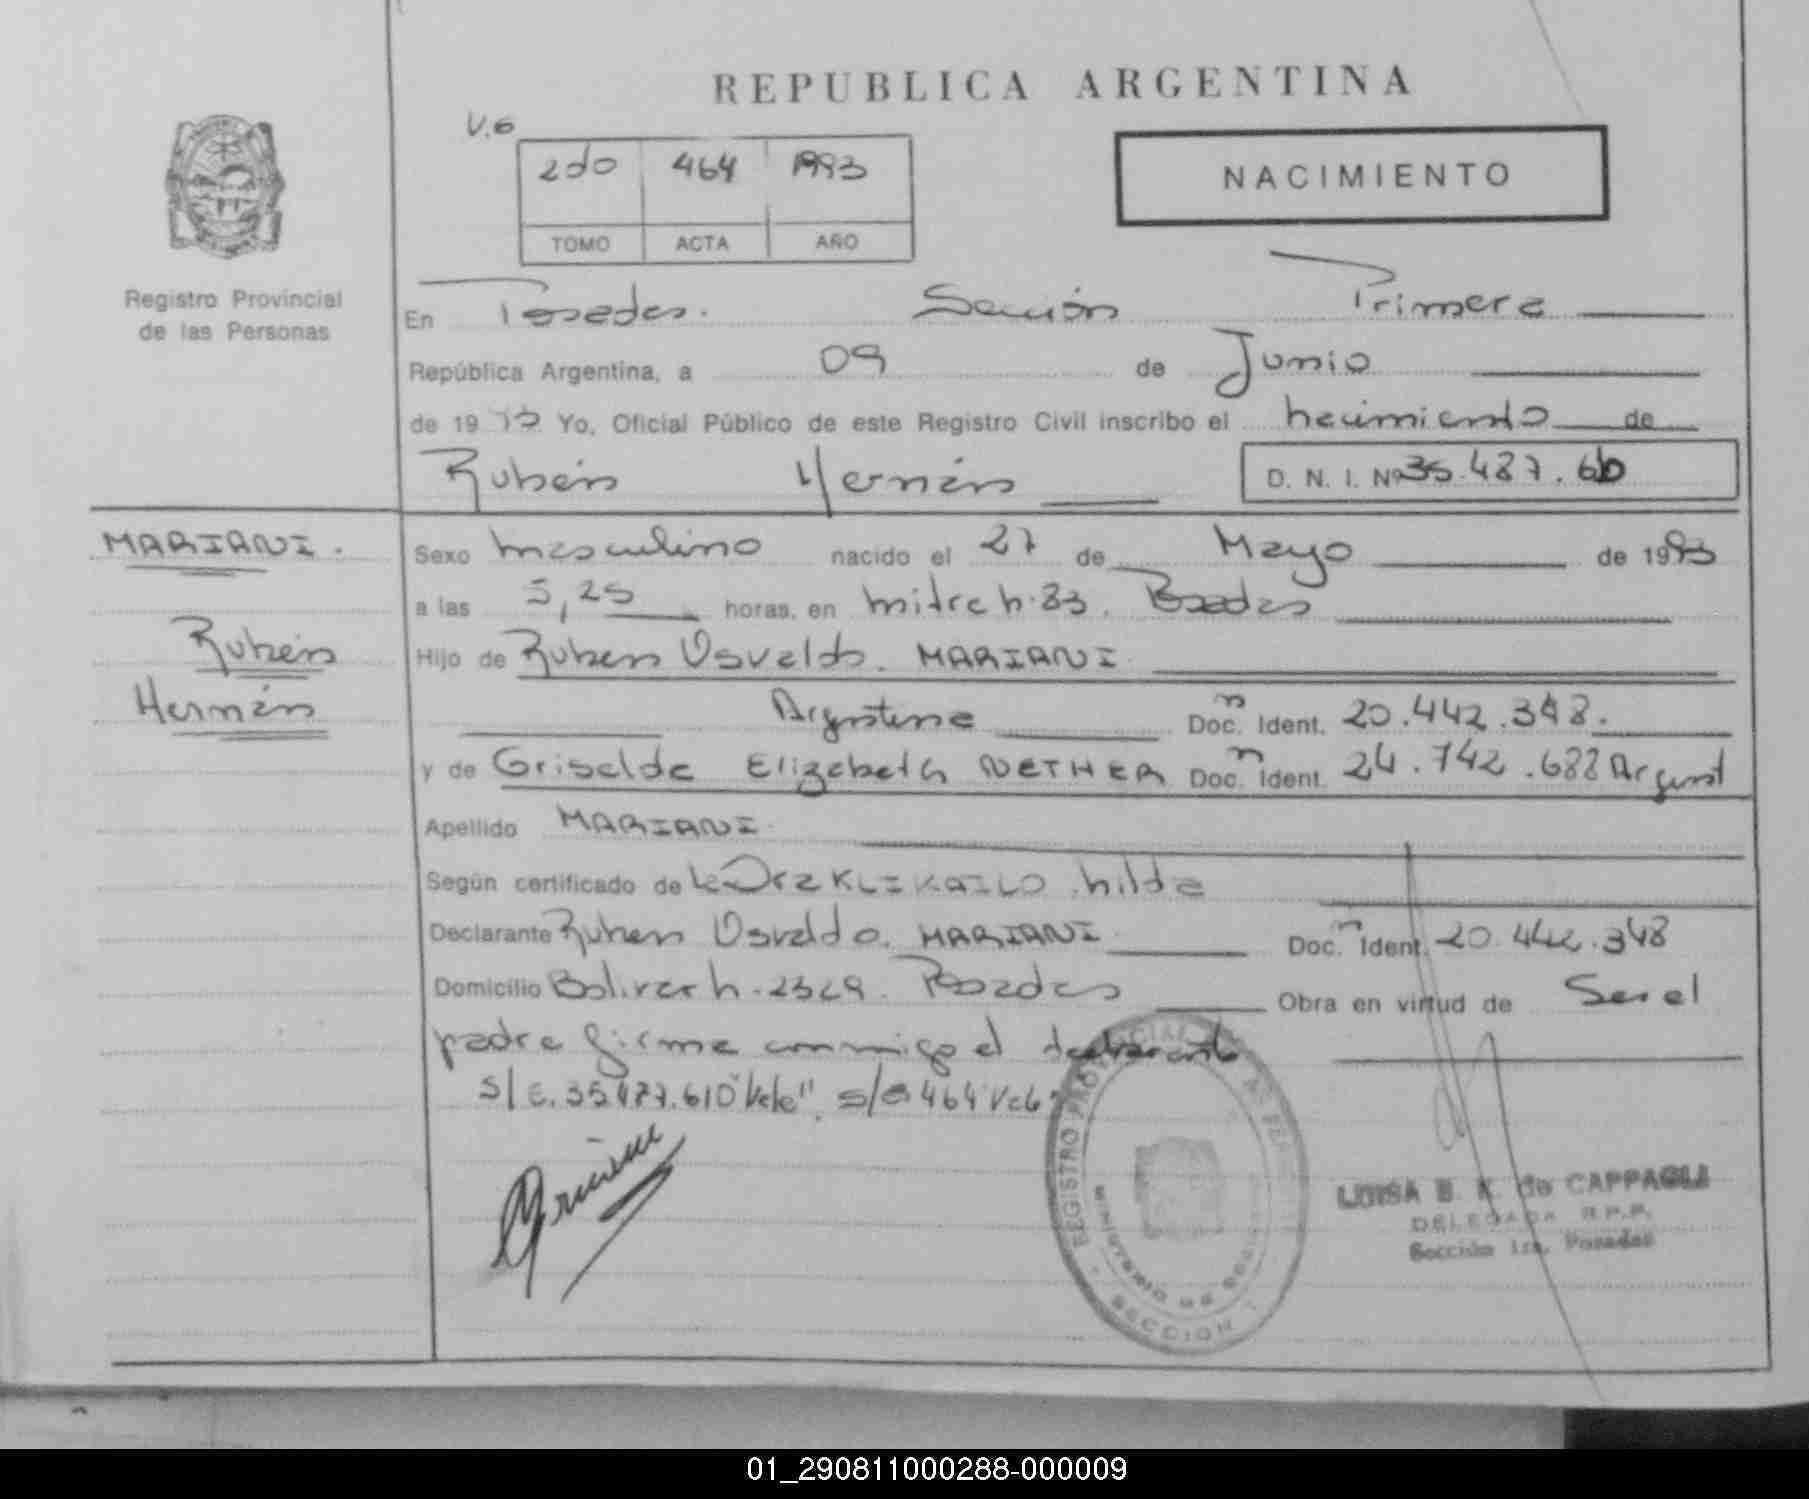 REPUBLICA ARGENTINA
V.6
2do 464 1993
TOMO ACTA AÑO
NACIMIENTO
Registro Provincial
de las Personas
En Posadas. Sección Primera
República Argentina, a 09 de Junio
de 19 93 Yo, Oficial Público de este Registro Civil inscribo el nacimiento de
Rubén Hernán D. N. I. Nº 35.487.610
MARIANI.
Rubén
Hernán
Sexo masculino nacido el 27 de Mayo de 1993
a las 5,25 horas, en mitre n. 83. Posadas
Hijo de Ruben Osvaldo. MARIANI
Argentina Doc. Ident. 20.442.348.
y de Griselda Elizabeth NETHER Doc. Ident. 24.742.688 Argent
Apellido MARIANI.
Según certificado de hilda
Declarante Ruben Osvaldo. MARIANI Doc. Ident. 20.442.348
Domicilio Bolivar n. 2329. Posadas Obra en virtud de Ser el
padre firma conmigo el declarante
S/E. 35.477.610 "Vale". s/e 464 Vale"
REGISTRO PROVINCIAL DE
MINISTERIO DE
SECCION 1
LUISA B. K. de CAPPAGLI
DELEGADA R.P.P.
Sección 1ra. Posadas
01_290811000288-000009